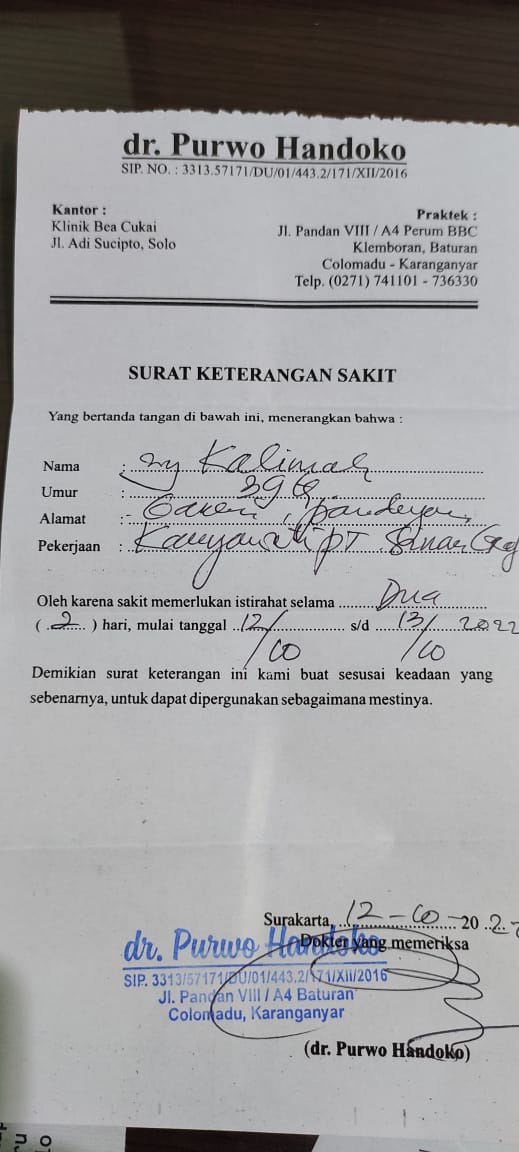 dr. Purwo Handoko
SIP. NO. : 3313.57171/DU/01/443.2/171/XII/2016
Kantor :
Klinik Bea Cukai
Jl. Adi Sucipto, Solo
Praktek :
Jl. Pandan VIII / A4 Perum BBC
Klemboran, Baturan
Colomadu - Karanganyar
Telp. (0271) 741101 - 736330
SURAT KETERANGAN SAKIT
Yang bertanda tangan di bawah ini, menerangkan bahwa :
Nama : Ny Kalimah
Umur : 39
Alamat :
Pekerjaan : PT
Oleh karena sakit memerlukan istirahat selama Dua
( 2 ) hari, mulai tanggal 12/10 s/d 13/10 2022
Demikian surat keterangan ini kami buat sesusai keadaan yang
sebenarnya, untuk dapat dipergunakan sebagaimana mestinya.
Surakarta, 12 - 10 - 20 22
Dokter yang memeriksa
dr. Purwo Handoko
SIP. 3313/57171/DU/01/443.2/171/XII/2016
Jl. Pandan VIII / A4 Baturan
Colomadu, Karanganyar
(dr. Purwo Handoko)